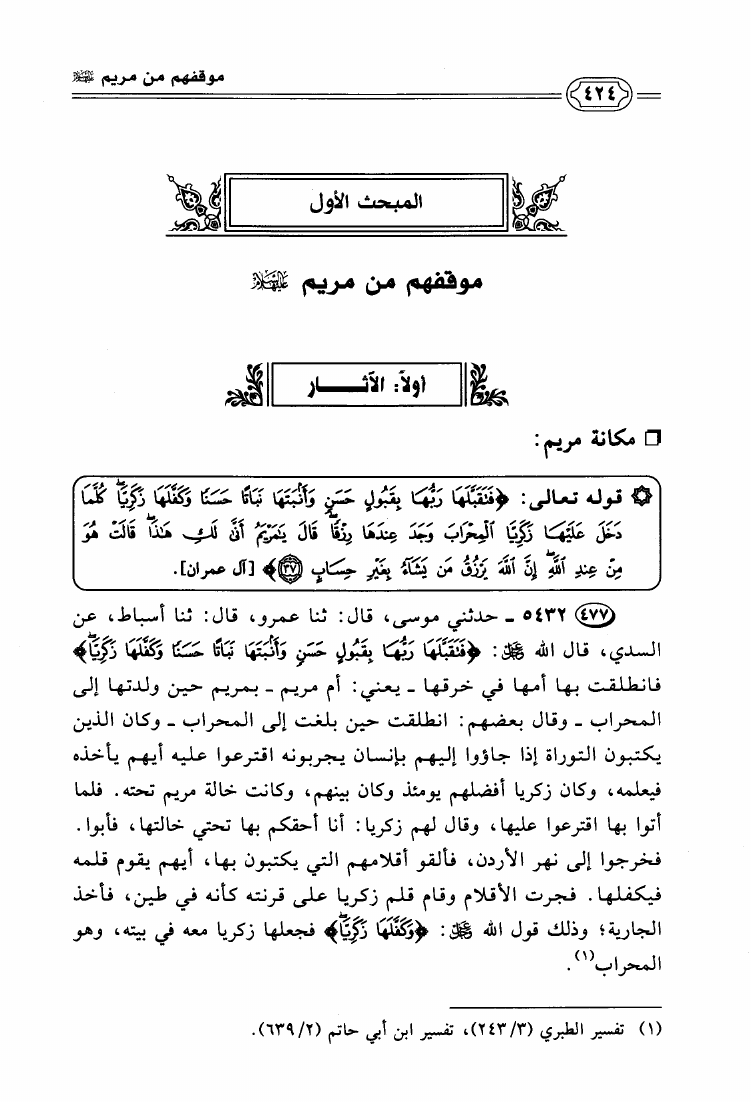 موقفهم من مريم عليها السلام
٤٢٤
المبحث الأول
موقفهم من مريم عليها السلام
أولاً: الآثـــــار
❒ مكانة مريم:
۞ قوله تعالى: ﴿فَتَقَبَّلَهَا رَبُّهَا بِقَبُولٍ حَسَنٍ وَأَنۢبَتَهَا نَبَاتًا حَسَنًا وَكَفَّلَهَا زَكَرِيَّاۖ كُلَّمَا
دَخَلَ عَلَيْهَا زَكَرِيَّا ٱلْمِحْرَابَ وَجَدَ عِندَهَا رِزْقًاۖ قَالَ يَٰمَرْيَمُ أَنَّىٰ لَكِ هَٰذَاۖ قَالَتْ هُوَ
مِنْ عِندِ ٱللَّهِۖ إِنَّ ٱللَّهَ يَرْزُقُ مَن يَشَآءُ بِغَيْرِ حِسَابٍ ﴿٣٧﴾﴾ [آل عمران].
(٤٧٧) ٥٤٣٢ ـ حدثني موسى، قال: ثنا عمرو، قال: ثنا أسباط، عن
السدي، قال الله ﷿: ﴿فَتَقَبَّلَهَا رَبُّهَا بِقَبُولٍ حَسَنٍ وَأَنۢبَتَهَا نَبَاتًا حَسَنًا وَكَفَّلَهَا زَكَرِيَّاۖ﴾
فانطلقت بها أمها في خرقها ـ يعني: أم مريم ـ بمريم حين ولدتها إلى
المحراب ـ وقال بعضهم: انطلقت حين بلغت إلى المحراب ـ وكان الذين
يكتبون التوراة إذا جاؤوا إليهم بإنسان يجربونه اقترعوا عليه أيهم يأخذه
فيعلمه، وكان زكريا أفضلهم يومئذ وكان بينهم، وكانت خالة مريم تحته. فلما
أتوا بها اقترعوا عليها، وقال لهم زكريا: أنا أحقكم بها تحتي خالتها، فأبوا.
فخرجوا إلى نهر الأردن، فألقو أقلامهم التي يكتبون بها، أيهم يقوم قلمه
فيكفلها. فجرت الأقلام وقام قلم زكريا على قرنته كأنه في طين، فأخذ
الجارية؛ وذلك قول الله ﷿: ﴿وَكَفَّلَهَا زَكَرِيَّاۖ﴾ فجعلها زكريا معه في بيته، وهو
المحراب(١).
(١) تفسير الطبري (٢٤٣/٣)، تفسير ابن أبي حاتم (٦٣٩/٢).